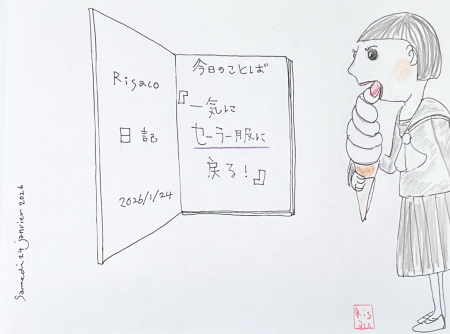 Samedi 24 janvier 2026
Risaco
日記
2026/1/24
今日のことば
『一気に
セーラー服に
戻る!』